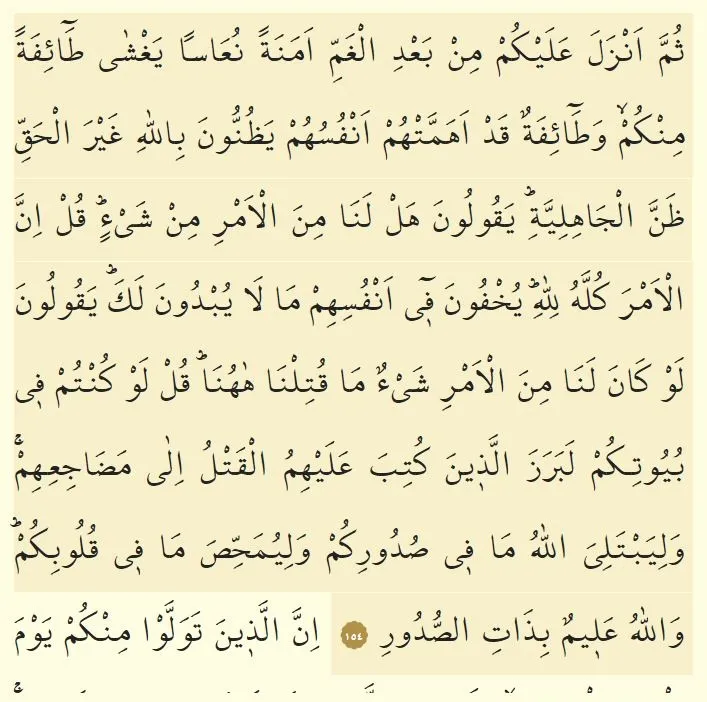 ثُمَّ اَنْزَلَ عَلَيْكُمْ مِنْ بَعْدِ الْغَمِّ اَمَنَةً نُعَاسًا يَغْشٰى طَٓائِفَةً
مِنْكُمْۙ وَطَٓائِفَةٌ قَدْ اَهَمَّتْهُمْ اَنْفُسُهُمْ يَظُنُّونَ بِاللّٰهِ غَيْرَ الْحَقِّ
ظَنَّ الْجَاهِلِيَّةِۜ يَقُولُونَ هَلْ لَنَا مِنَ الْاَمْرِ مِنْ شَيْءٍۜ قُلْ اِنَّ
الْاَمْرَ كُلَّهُ لِلّٰهِۜ يُخْفُونَ ف۪ٓي اَنْفُسِهِمْ مَا لَا يُبْدُونَ لَكَۜ يَقُولُونَ
لَوْ كَانَ لَنَا مِنَ الْاَمْرِ شَيْءٌ مَا قُتِلْنَا هٰهُنَاۜ قُلْ لَوْ كُنْتُمْ ف۪ي
بُيُوتِكُمْ لَبَرَزَ الَّذ۪ينَ كُتِبَ عَلَيْهِمُ الْقَتْلُ اِلٰى مَضَاجِعِهِمْۚ
وَلِيَبْتَلِيَ اللّٰهُ مَا ف۪ي صُدُورِكُمْ وَلِيُمَحِّصَ مَا ف۪ي قُلُوبِكُمْۜ
وَاللّٰهُ عَل۪يمٌ بِذَاتِ الصُّدُورِ ١٥٤ اِنَّ الَّذ۪ينَ تَوَلَّوْا مِنْكُمْ يَوْمَ